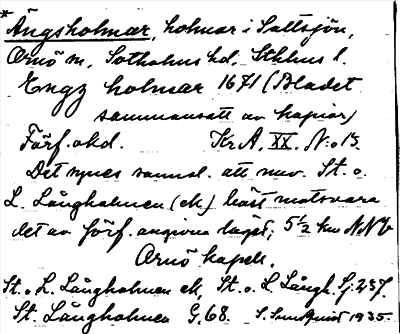 *Ängsholmar, holmar i Saltsjön,
Ornö sn, Sotholms hd, Sthlms l.
Engz holmar 1671 (Bladet
sammansatt av kopior)
Förf. okd. Kr.A. XX. N:o 13.
Det synes sannol. att nuv. St. o.
L. Långholmen (ek) bäst motsvara
det av förf. angivna läget; 5½ km NNV
Ornö kapell.
St. o L. Långholmen ek, St. o. L. Långh. Sj. 237.
St. Långholmen G. 68. S. Sundquist 1935.